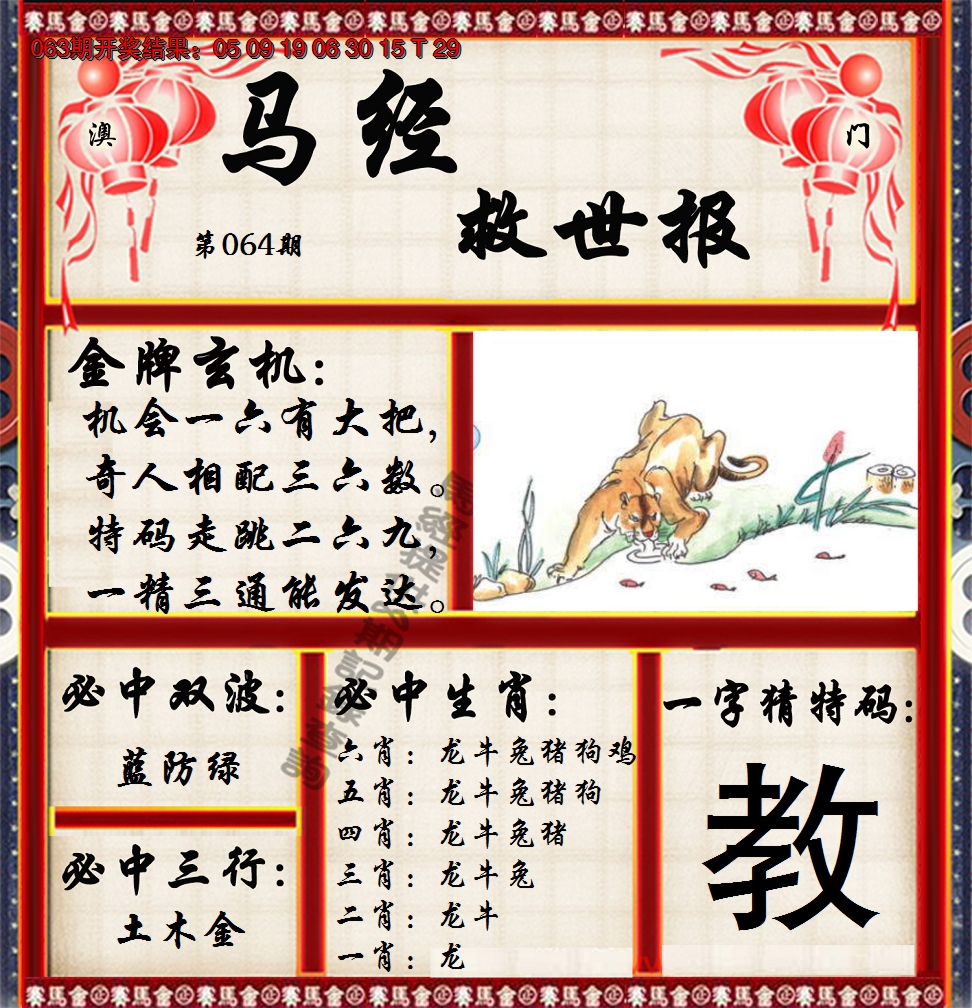 赛马会
063期开奖结果：05 09 19 06 30 15 T 29
澳 门
马经
救世报
第064期
金牌玄机：
机会一六有大把，
奇人相配三六数。
特码走跳二六九，
一精三通能发达。
必中双波：
蓝防绿
必中三行：
土木金
必中生肖：
六肖：龙牛兔猪狗鸡
五肖：龙牛兔猪狗
四肖：龙牛兔猪
三肖：龙牛兔
二肖：龙牛
一肖：龙
一字猜特码：
教